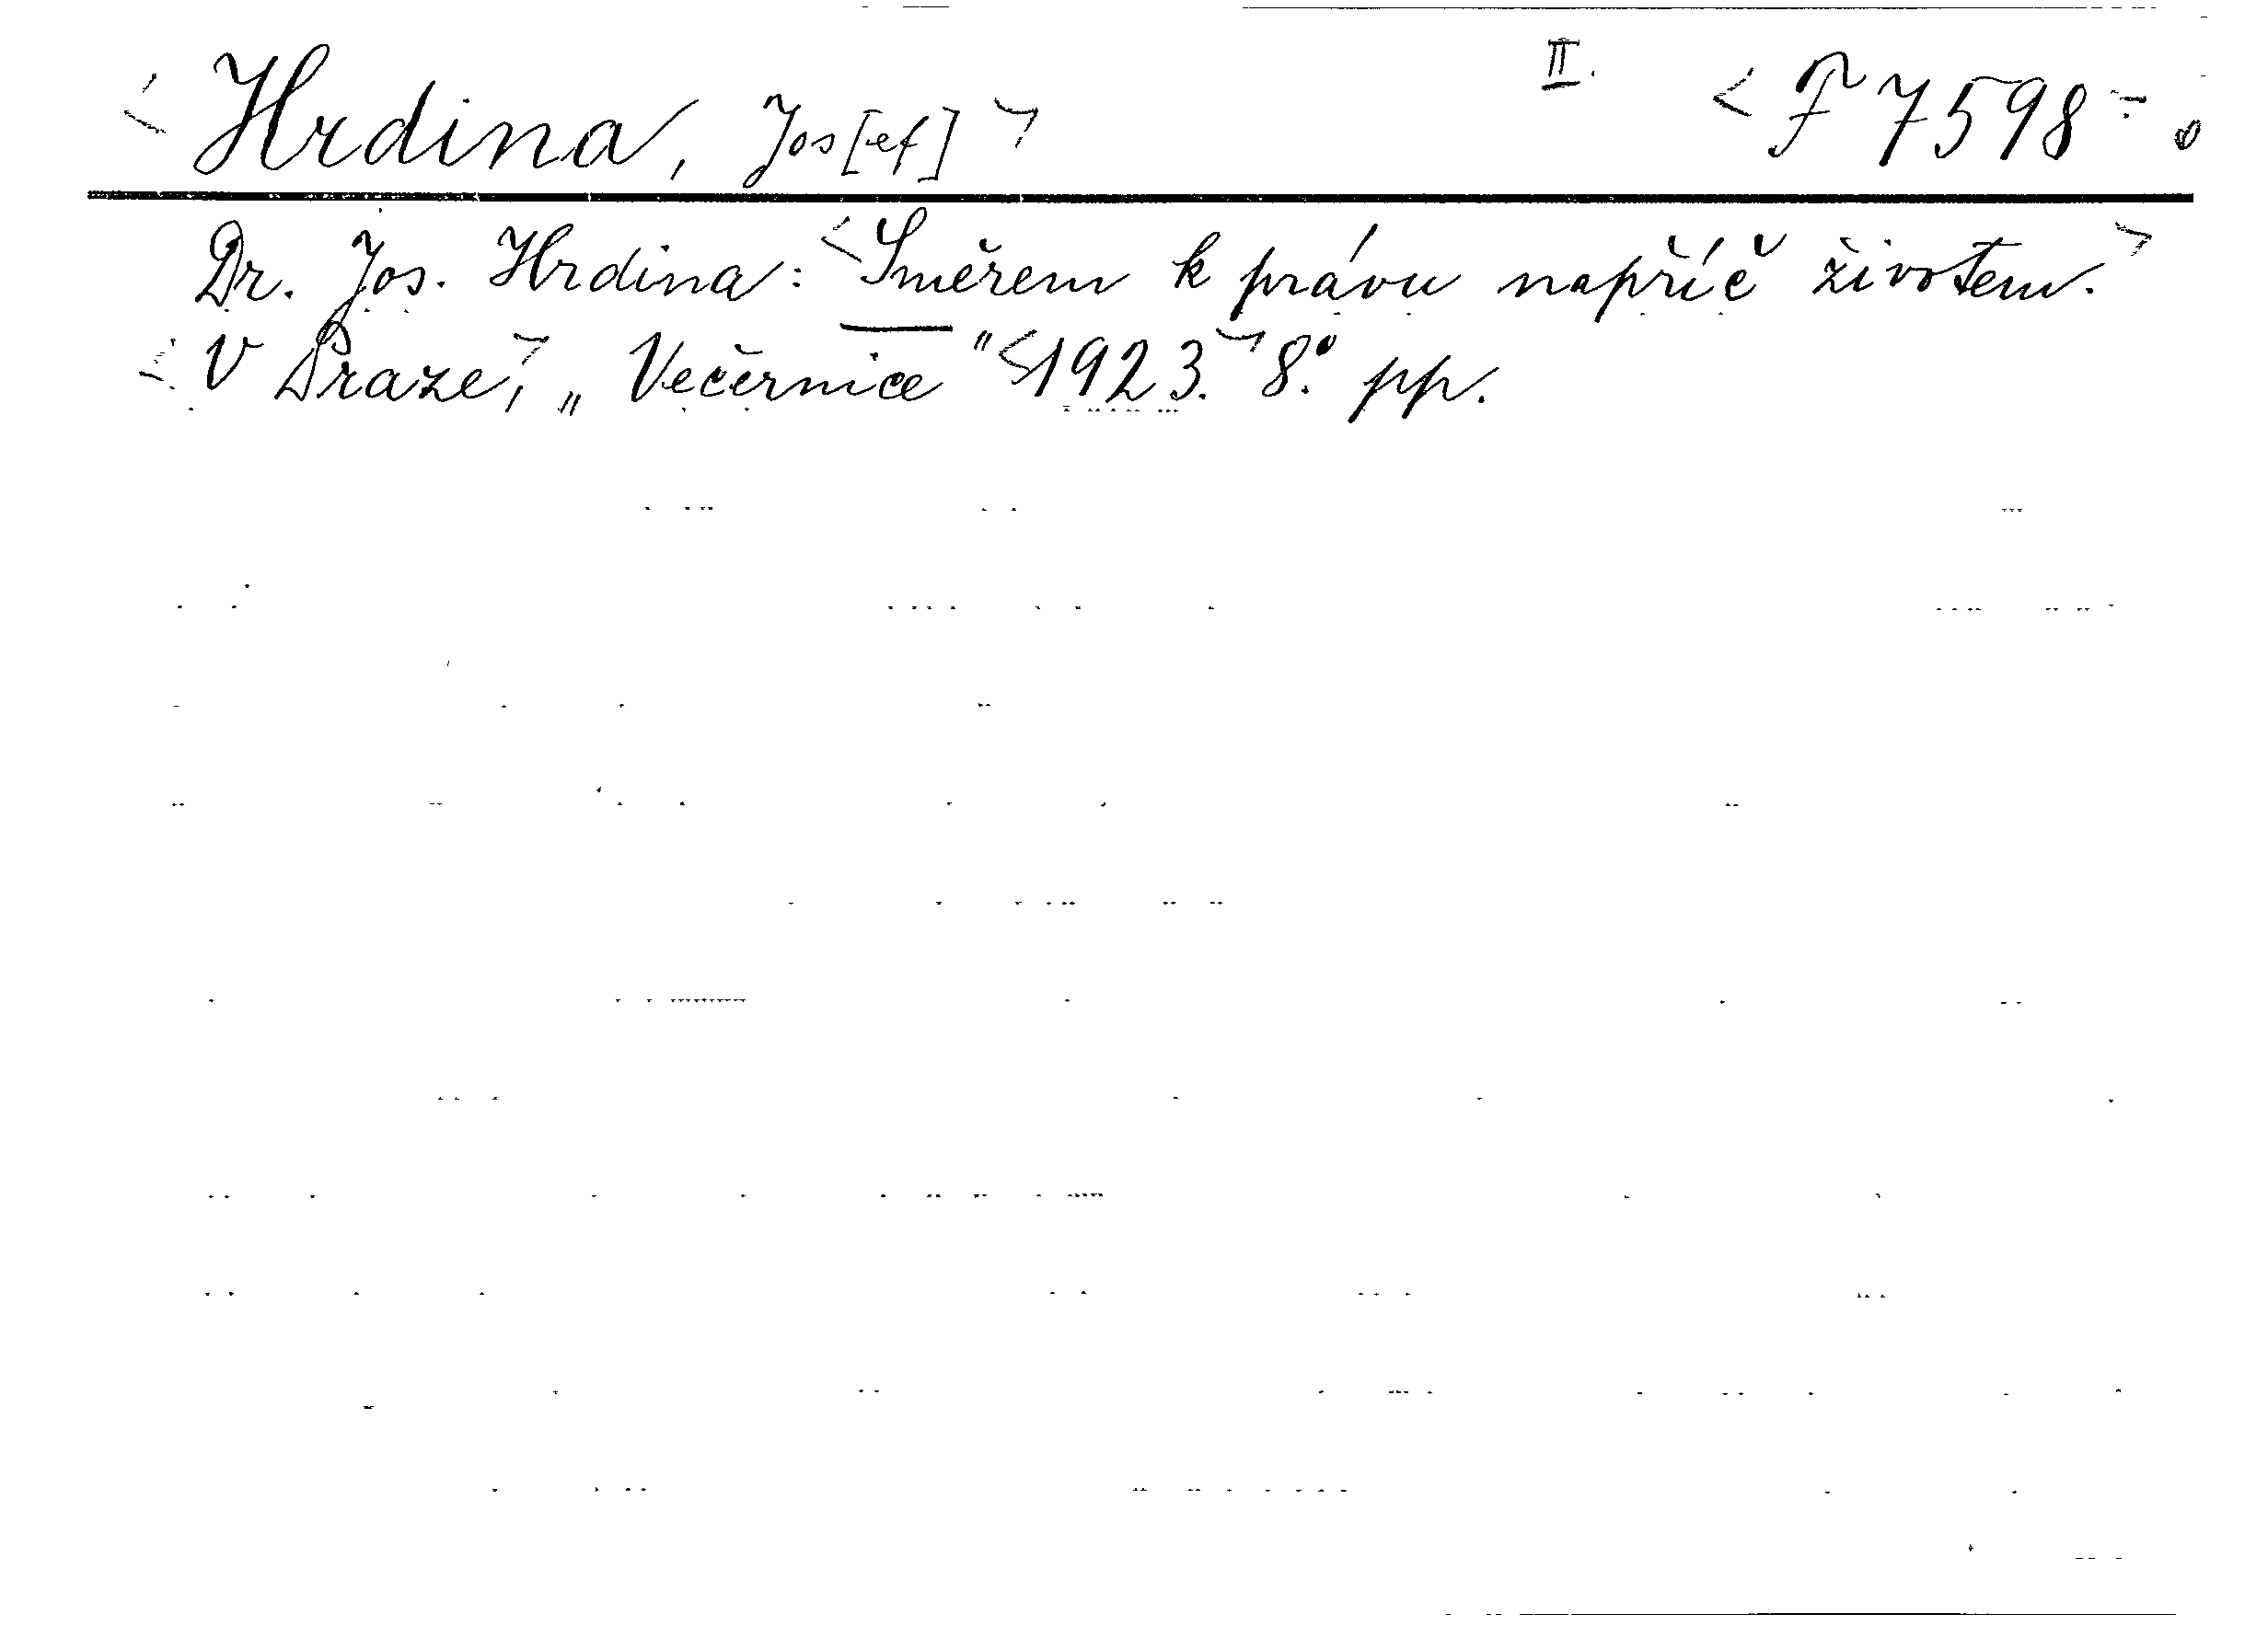 <Hrdina, Jos[ef]> II. <F 7598>
Dr. Jos. Hrdina: <Směrem k právu napříč životem.>
<V Praze,> „Večernice" <1923.> 8.° pp.